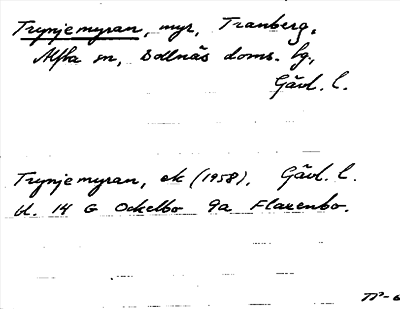 Trynjemyran, myr, Tranberg,
Alfta sn, Bollnäs doms. hg.,
Gävl. l.
Trynjemyran, ek (1958), Gävl. l.
bl. 14 G Ockelbo 9a Flaxenbo.